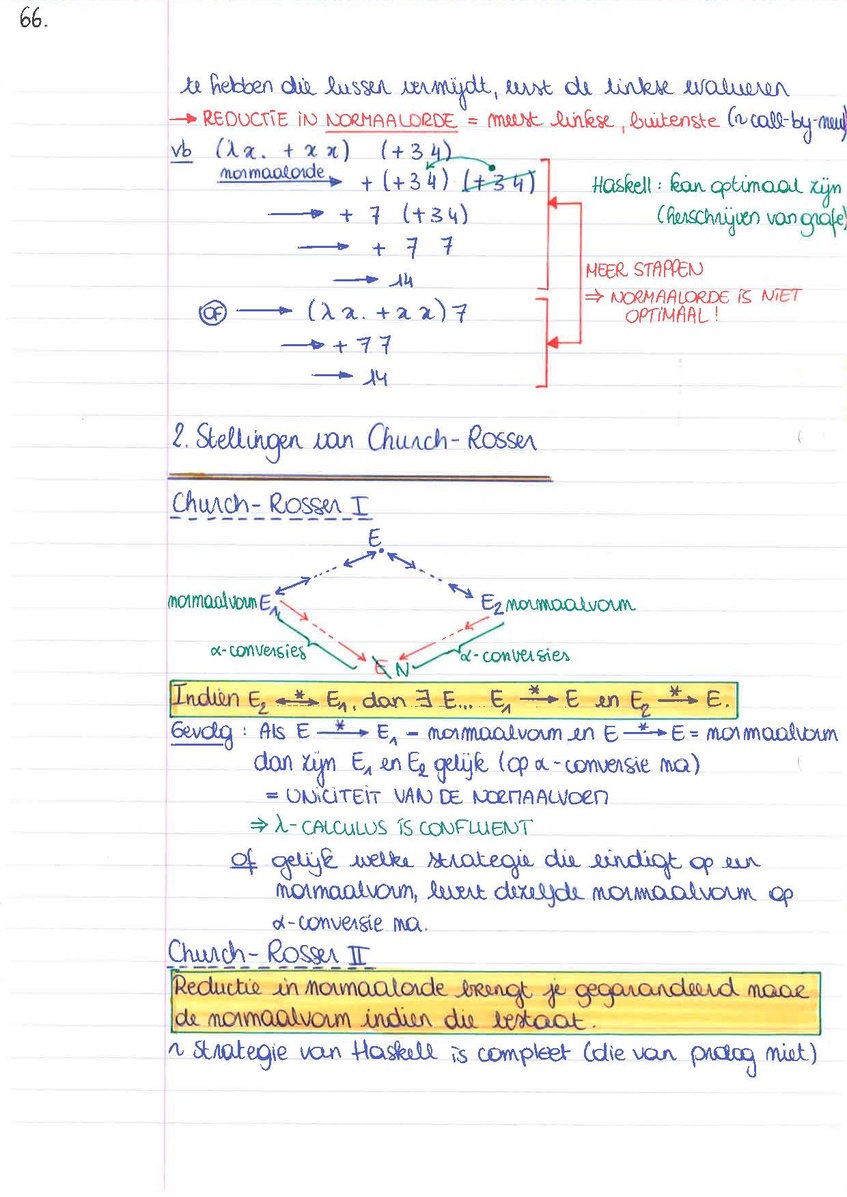 66.
te hebben die lussen vermijdt, eerst de linkse evalueren
→ REDUCTIE IN NORMAALORDE = meest linkse, buitenste (~ call-by-new)
vb (λx. + x x) (+ 3 4)
normaalorde → + (+ 3 4) (+ 3 4)
Haskell: kan optimaal zijn
(herschrijven van grafe)
→ + 7 (+ 3 4)
→ + 7 7
→ 14
MEER STAPPEN
⇒ NORMAALORDE IS NIET
OPTIMAAL!
OF → (λx. + x x) 7
→ + 7 7
→ 14
2. Stellingen van Church-Rosser
Church-Rosser I
E
normaalvorm E₁
E₂ normaalvorm
α-conversies
α-conversies
E N
Indien E₂ <-*-> E₁, dan ∃ E... E₁ -*-> E en E₂ -*-> E.
Gevolg: Als E -*-> E₁ = normaalvorm en E -*-> E = normaalvorm
dan zijn E₁ en E₂ gelijk (op α-conversie na)
= UNICITEIT VAN DE NORMAALVORM
⇒ λ-CALCULUS IS CONFLUENT
Of gelijk welke strategie die eindigt op een
normaalvorm, levert dezelfde normaalvorm op
α-conversie na.
Church-Rosser II
Reductie in normaalorde brengt je gegarandeerd naar
de normaalvorm indien die bestaat.
~ Strategie van Haskell is compleet (die van prolog niet)